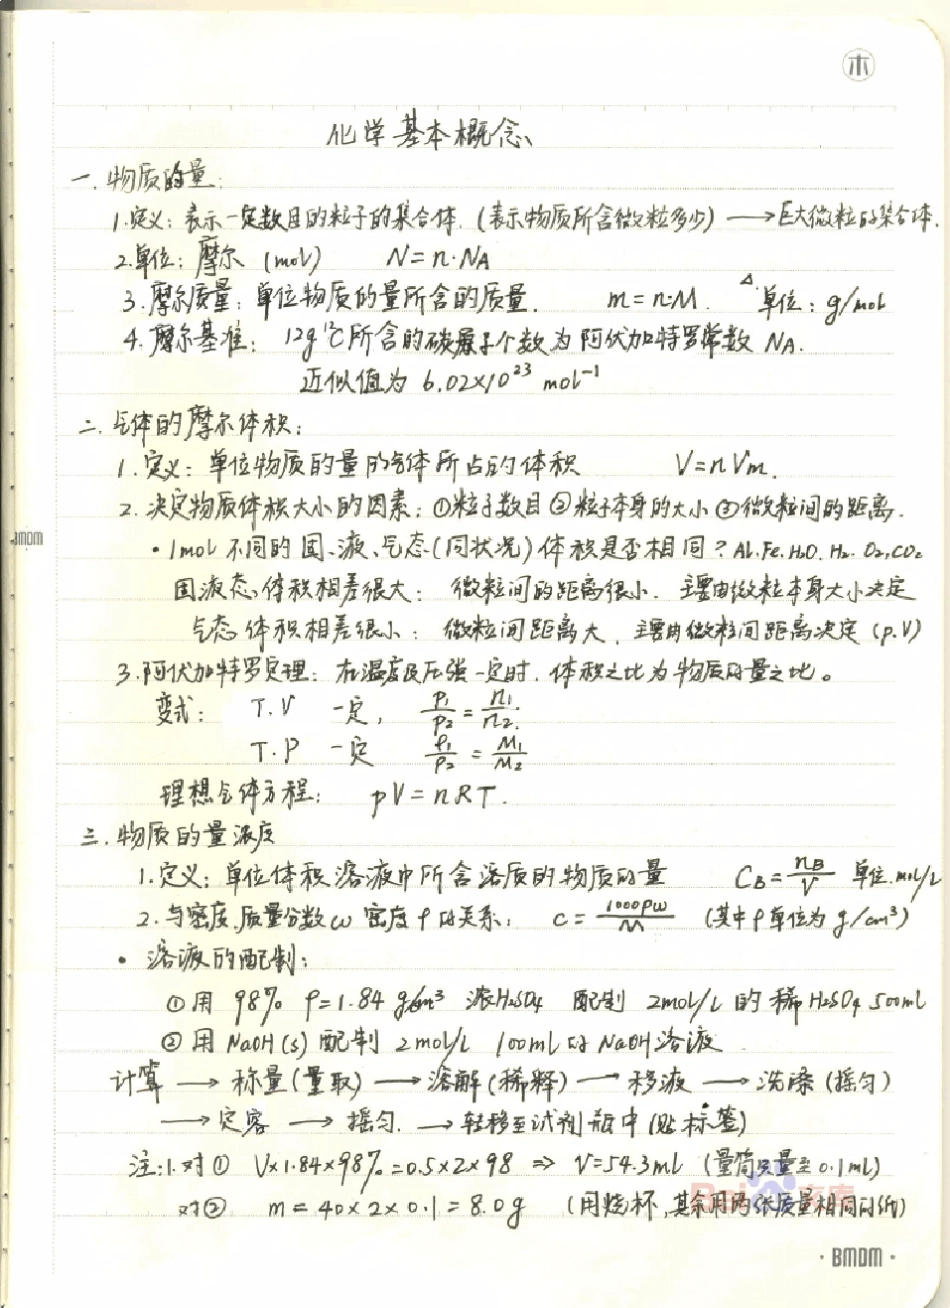 木
化学基本概念
一.物质的量:
1.定义:表示一定数目的粒子的集合体.(表示物质所含微粒多少)⟶巨大微粒的集合体.
2.单位:摩尔 (mol) N=n·NA
3.摩尔质量:单位物质的量所含的质量. m=n·M. △.单位:g/mol
4.摩尔基准: 12g ¹²C所含的碳原子个数为阿伏加特罗常数 NA.
近似值为 6.02×10²³ mol⁻¹
二.气体的摩尔体积:
1.定义:单位物质的量的气体所占的体积 V=nVm.
2.决定物质体积大小的因素:①粒子数目②粒子本身的大小③微粒间的距离.
bmdm
·1mol 不同的固、液、气态(同状况)体积是否相同?Al.Fe.H₂O.H₂.O₂.CO₂
固液态、体积相差很大: 微粒间的距离很小. 主要由微粒本身大小决定
气态体积相差很小: 微粒间距离大.主要由微粒间距离决定(p.V)
3.阿伏加特罗定理:在温度及压强一定时.体积之比为物质的量之比。
变式: T.V 一定, P₁/P₂=n₁/n₂.
T.P 一定 ρ₁/ρ₂=M₁/M₂
理想气体方程: pV=nRT.
三.物质的量浓度
1.定义:单位体积溶液中所含溶质的物质的量 CB=nB/V 单位.mol/L
2.与密度.质量分数ω 密度ρ的关系: C=1000ρω/M (其中ρ单位为g/cm³)
· 溶液的配制:
①用 98% ρ=1.84 g/cm³ 浓H₂SO₄ 配制 2mol/L 的稀H₂SO₄ 500ml
②用 NaOH(s) 配制 2mol/L 100ml的NaOH溶液
计算 ⟶ 称量(量取) ⟶溶解(稀释) ⟶ 移液 ⟶ 洗涤(摇匀)
⟶ 定容 ⟶ 摇匀. ⟶转移至试剂瓶中(贴标签)
注:1.对① V×1.84×98%=0.5×2×98 ⇒ V=54.3ml (量筒只量至0.1ml)
对② m=40×2×0.1=8.0g (用烧杯,其余用两张质量相同的纸)
·BMDM·